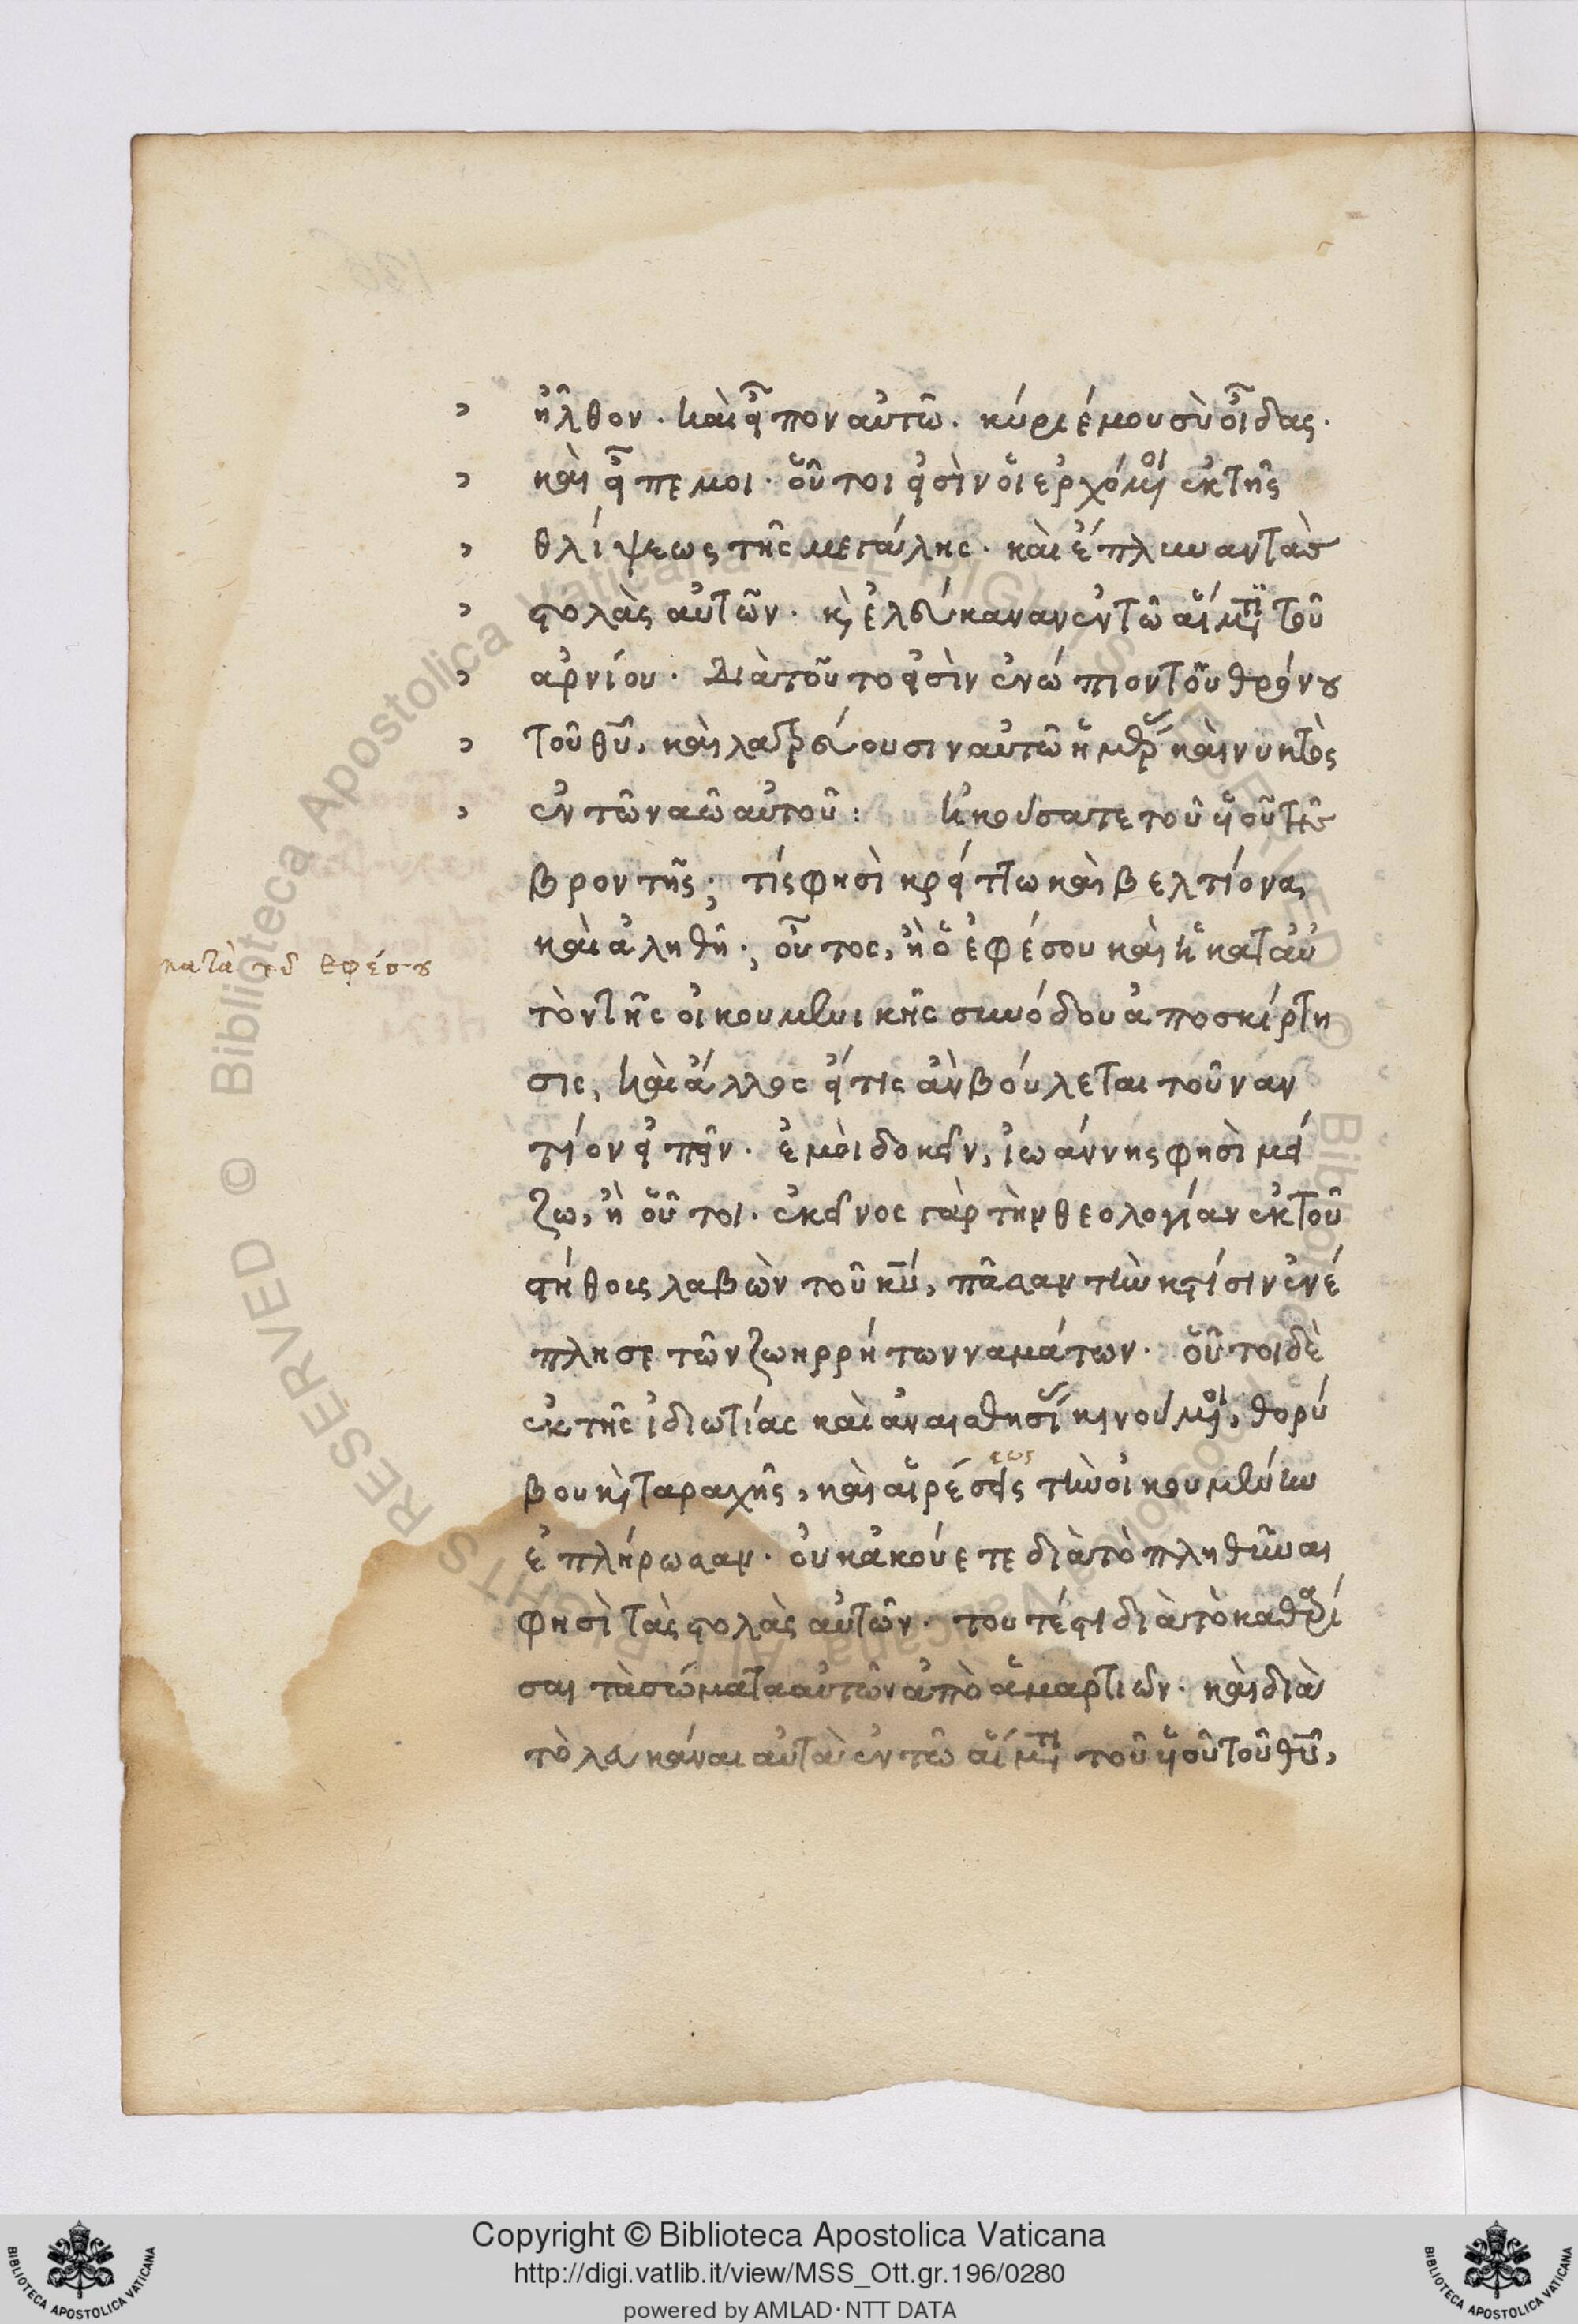 ἦλθον. καὶ εἶπον αὐτῶ. κύριέ μου σὺ οἶδας.
καὶ εἶπε μοι. οὗτοι εἰσὶν οἱ ερχόμενοι ἐκ τῆς
θλίψεως τῆς μεγάλης. καὶ ἔπλυναν τὰσ
στολὰς αὐτῶν. κ, ἐλεύκαναν ἐν τῶ αἵματι τοῦ
αρνίου. Διὰ τοῦτο εἰσὶν ἐνώπιον τοῦ θρόνου
τοῦ θυ, καὶ λατρεύουσιν αυτῶ ἡμέρας καὶ νυκτὸς
ἐν τῶ ναῶ αὐτοῦ: Ἠκούσατε τοῦ υἱοῦ τῆσ
βροντῆς; τίς φησὶ κρείττω καὶ βελτίονα,
καὶ ἀληθῆ; οὗτος, ἢ ὁ ἐφέσου καὶ ἡ κατ αὐ
κατὰ τοῦ Εφέσου
τὸν τῆς οἰκουμενικῆς συνόδου ἀποσκίρτη
σις, καὶ ἄλλος εἴ τις ἀν βούλεται τοῦναν
τίον εἰπεῖν. ἐμοὶ δοκεῖν, ἰωάννης φησὶ μεί
ζω, ἢ οὗτοι. ἐκεῖνος γὰρ τὴν θεολογίαν ἐκ τοῦ
στήθους λαβὼν τοῦ κυ, πᾶσαν τὴν κτίσιν ἐνέ
πλησε τῶν ζωηρρήτων ναμάτων. οὗτοι δὲ
ἐκ τῆς ἰδιωτίας καὶ ἀναισθησίας κινούμενοι, θορύ
βου κ, ταραχῆς, καὶ αἱρέσεις τὴν οἰκουμένην
εως
ἐπλήρωσαν. οὐκ ἀκούετε διὰ τὸ πληθῦναι
φησὶ τὰς στολὰς αὐτῶν. τουτέστι διὰ τὸ καθαρί
σαι τὰ σώματα αυτῶν ἀπὸ ἁμαρτιῶν. καὶ διὰ
τὸ λευκάναι αὐτὰ ἐν τῶ αἵματι τοῦ υἱοῦ τοῦ θυ,
Copyright © Biblioteca Apostolica Vaticana
http://digi.vatlib.it/view/MSS_Ott.gr.196/0280
powered by AMLAD · NTT DATA